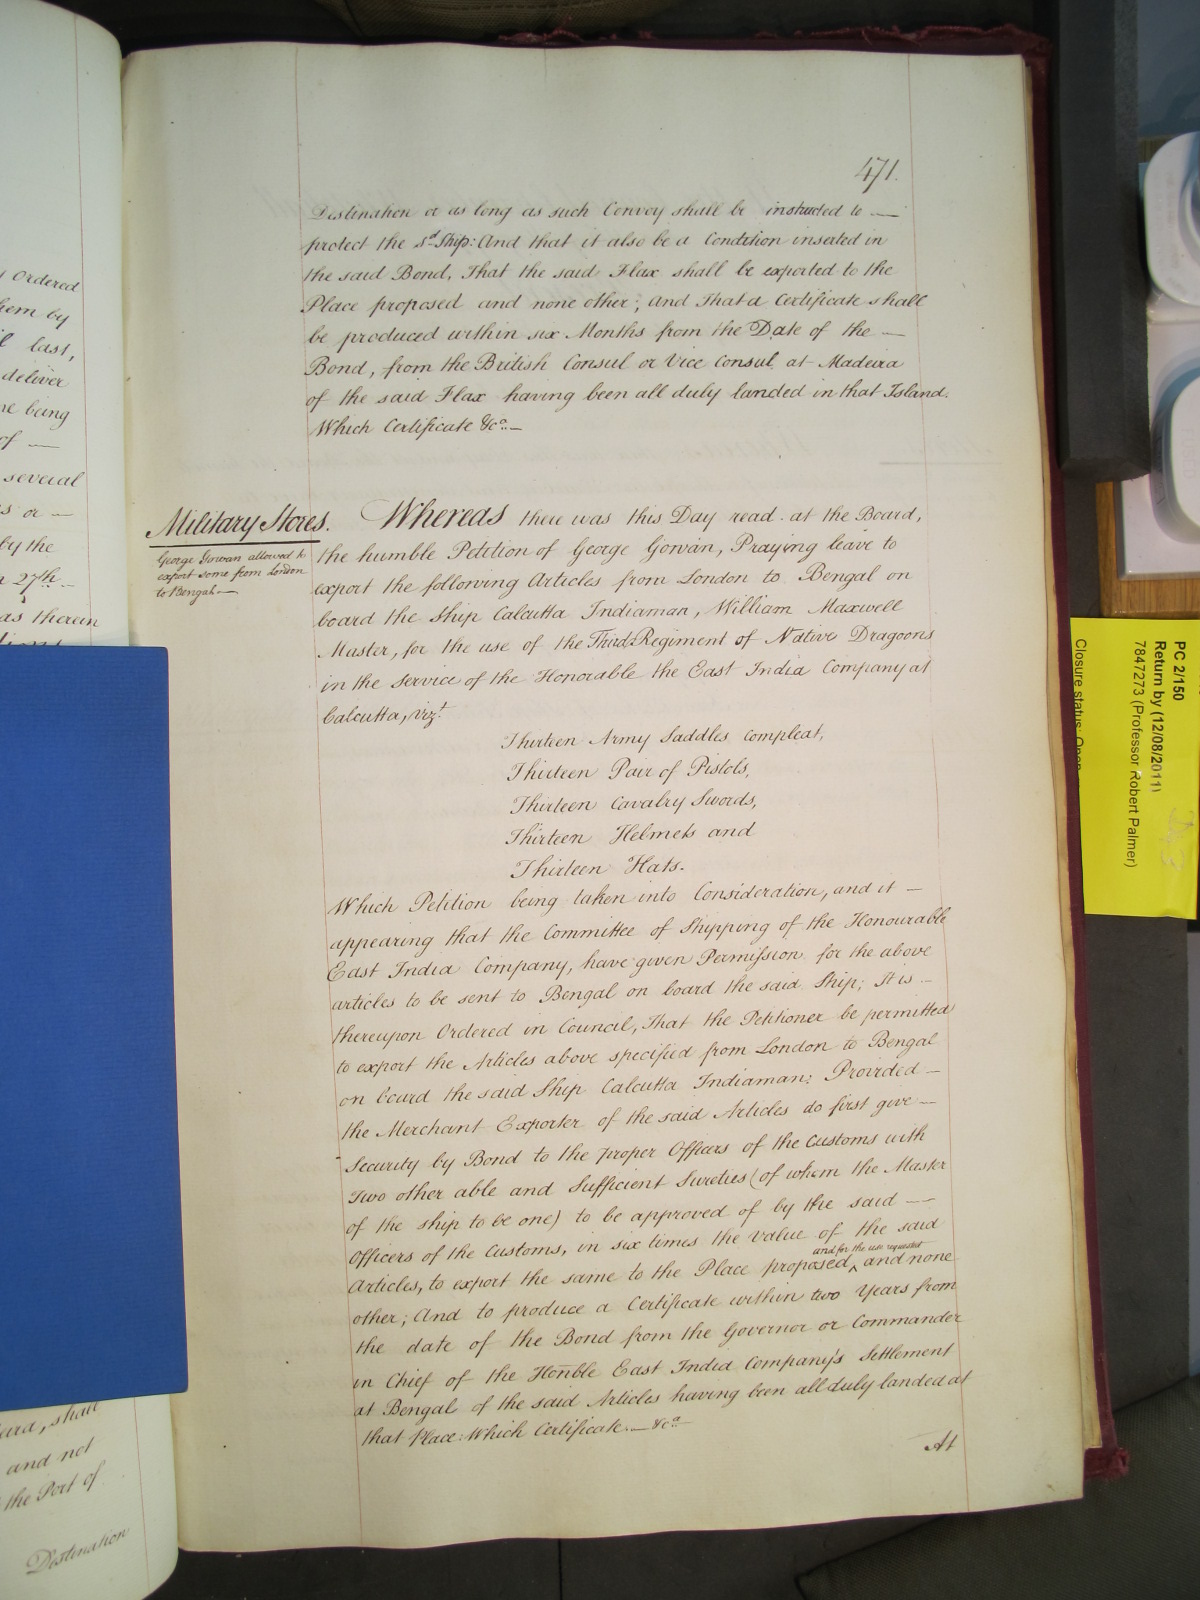 471.
Destination or as long as such Convoy shall be instructed to —
protect the sd. Ship: And that it also be a Condition inserted in
the said Bond, That the said Flax shall be exported to the
Place proposed and none other; and That a Certificate shall
be produced within six Months from the Date of the —
Bond, from the British Consul or Vice Consul at Madeira
of the said Flax having been all duly landed in that Island.
Which Certificate &ca. —
Military Stores.
George Gowan allowed to
export some from London
to Bengal —
Whereas there was this Day read at the Board,
the humble Petition of George Gowan, Praying leave to
export the following Articles from London to Bengal on
board the Ship Calcutta Indiaman, William Maxwell
Master, for the use of the Third Regiment of Native Dragoons
in the Service of the Honorable the East India Company at
Calcutta, vizt.
Thirteen Army Saddles compleat,
Thirteen Pair of Pistols,
Thirteen Cavalry Swords,
Thirteen Helmets and
Thirteen Hats.
Which Petition being taken into Consideration, and it —
appearing that the Committee of Shipping of the Honourable
East India Company, have given Permission for the above
articles to be sent to Bengal on board the said Ship; It is —
thereupon Ordered in Council, That the Petitioner be permitted
to export the Articles above specified from London to Bengal
on board the said Ship Calcutta Indiaman: Provided —
the Merchant Exporter of the said Articles do first give —
Security by Bond to the proper Officers of the Customs with
Two other able and Sufficient Sureties (of whom the Master
of the ship to be one) to be approved of by the said —
Officers of the Customs, in six times the value of the said
and for the use requested
Articles, to export the same to the Place proposed, ^ and none
other; And to produce a Certificate within two Years from
the date of the Bond from the Governor or Commander
in Chief of the Honble East India Company's Settlement
at Bengal of the said Articles having been all duly landed at
that Place: Which Certificate — &ca
At
Ordered
them by
last,
deliver
being
of —
several
or —
by the
27th
as therein
shall
and not
the Port of
Destination
PC 2/150
Return by (12/08/2011)
7847273 (Professor Robert Palmer)
Closure status: Open